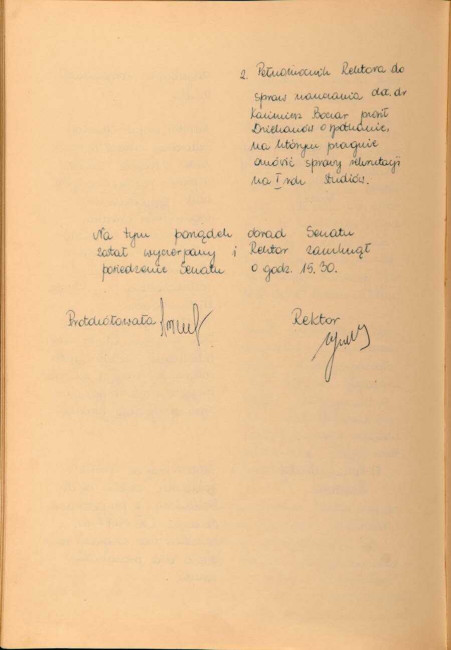 2. Pełnomocnik Rektora do
spraw nauczania doc. dr
Kazimierz Bocar prosił
Dziekanów o spotkanie,
na którym pragnie
omówić sprawy rekrutacji
na I rok studiów.
Na tym porządek obrad Senatu
został wyczerpany i Rektor zamknął
posiedzenie Senatu o godz. 15.30.
Protokółowała
Rektor